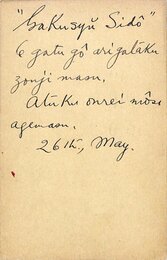 "Gakusyû Sidô"
6 gatu gô arigataku
zonji masu.
Atuku onrei môsi
agemasu.
26th, May.